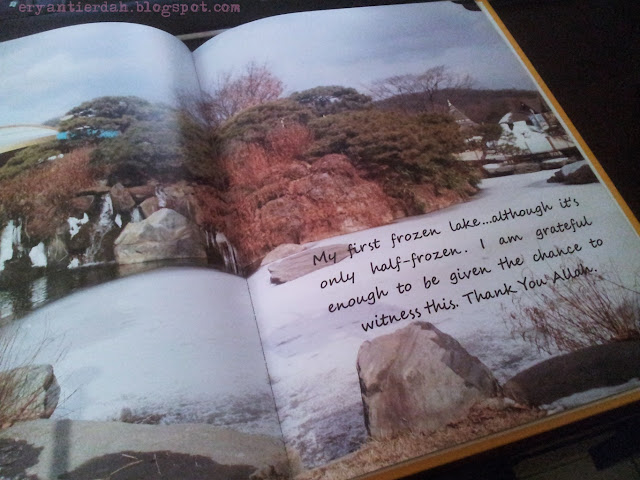 "eryantierdah.blogspot.com
My first frozen lake...although it's
only half-frozen. I am grateful
enough to be given the chance to
witness this. Thank You Allah.